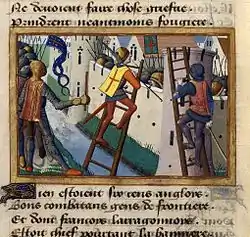 Ne devoient faire chose griefue
Prindrent neantmoins fougiere
ien estoient six cens anglois
Bons combatans gens de frontiere
Et dont francois larragonnois
Estoit chief portant la banniere